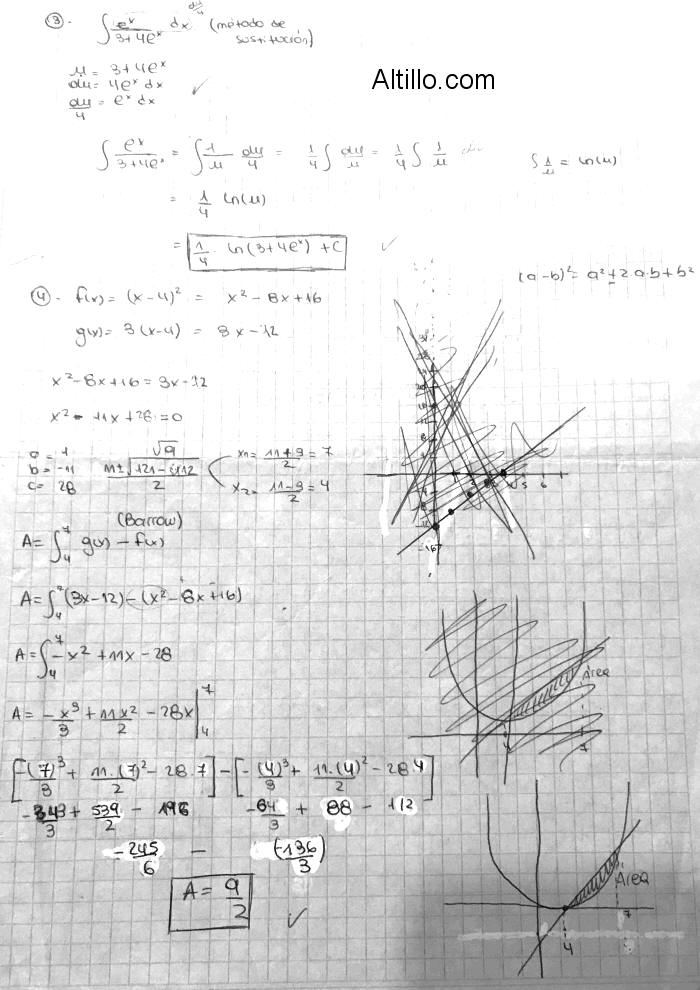 ③- ∫ eˣ/(3+4eˣ) dx du/4 (método de sustitución)
Altillo.com
u = 3+4eˣ
du = 4eˣ dx
du/4 = eˣ dx
∫ eˣ/(3+4eˣ) = ∫ 1/u du/4 = 1/4 ∫ du/u = 1/4 ∫ 1/u
∫ 1/u = ln(u)
= 1/4 ln(u)
= 1/4 . ln(3+4eˣ) + C
(a-b)² = a²±2.a.b+b²
④- f(x) = (x-4)² = x² - 8x+16
g(x) = 3(x-4) = 3x-12
x²-8x+16 = 3x-12
x² - 11x +28 = 0
a = 1
b = -11
c = 28
√9
11±√121-112 / 2
x₁ = (11+3)/2 = 7
x₂ = (11-3)/2 = 4
(Barrow)
A = ∫₄⁷ g(x) - f(x)
A = ∫₄⁷ (3x-12) - (x²-8x+16)
A = ∫₄⁷ -x² + 11x - 28
A = -x³/3 + 11x²/2 - 28x |₄⁷
[-(7)³/3 + 11.(7)²/2 - 28.7] - [-(4)³/3 + 11.(4)²/2 - 28.4]
-343/3 + 539/2 - 196 -64/3 + 88 - 112
-245/6 - (-136/3)
A = 9/2
Área
4
7
Área
4
7